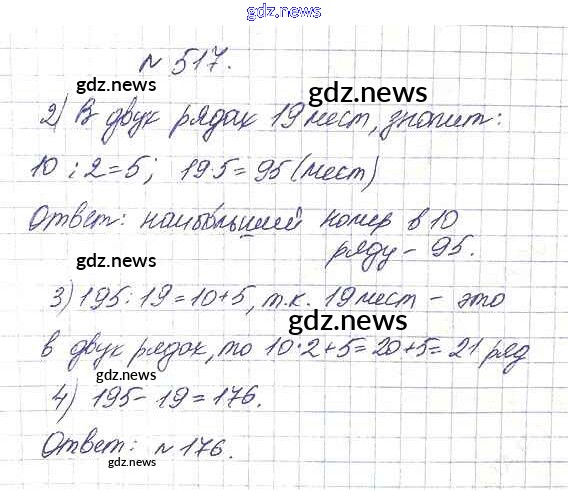 gdz.news
№ 517.
gdz.news
gdz.news
2) В двух рядах 19 мест, значит:
10 : 2 = 5; 19·5 = 95 (мест)
gdz.news
Ответ: наибольший номер в 10
ряду – 95.
gdz.news
3) 195 : 19 = 10+5, т.к. 19 мест – это
gdz.news
в двух рядах, то 10·2+5=20+5=21 ряд
gdz.news
4) 195 – 19 = 176.
Ответ: №176.
gdz.news
gdz.news